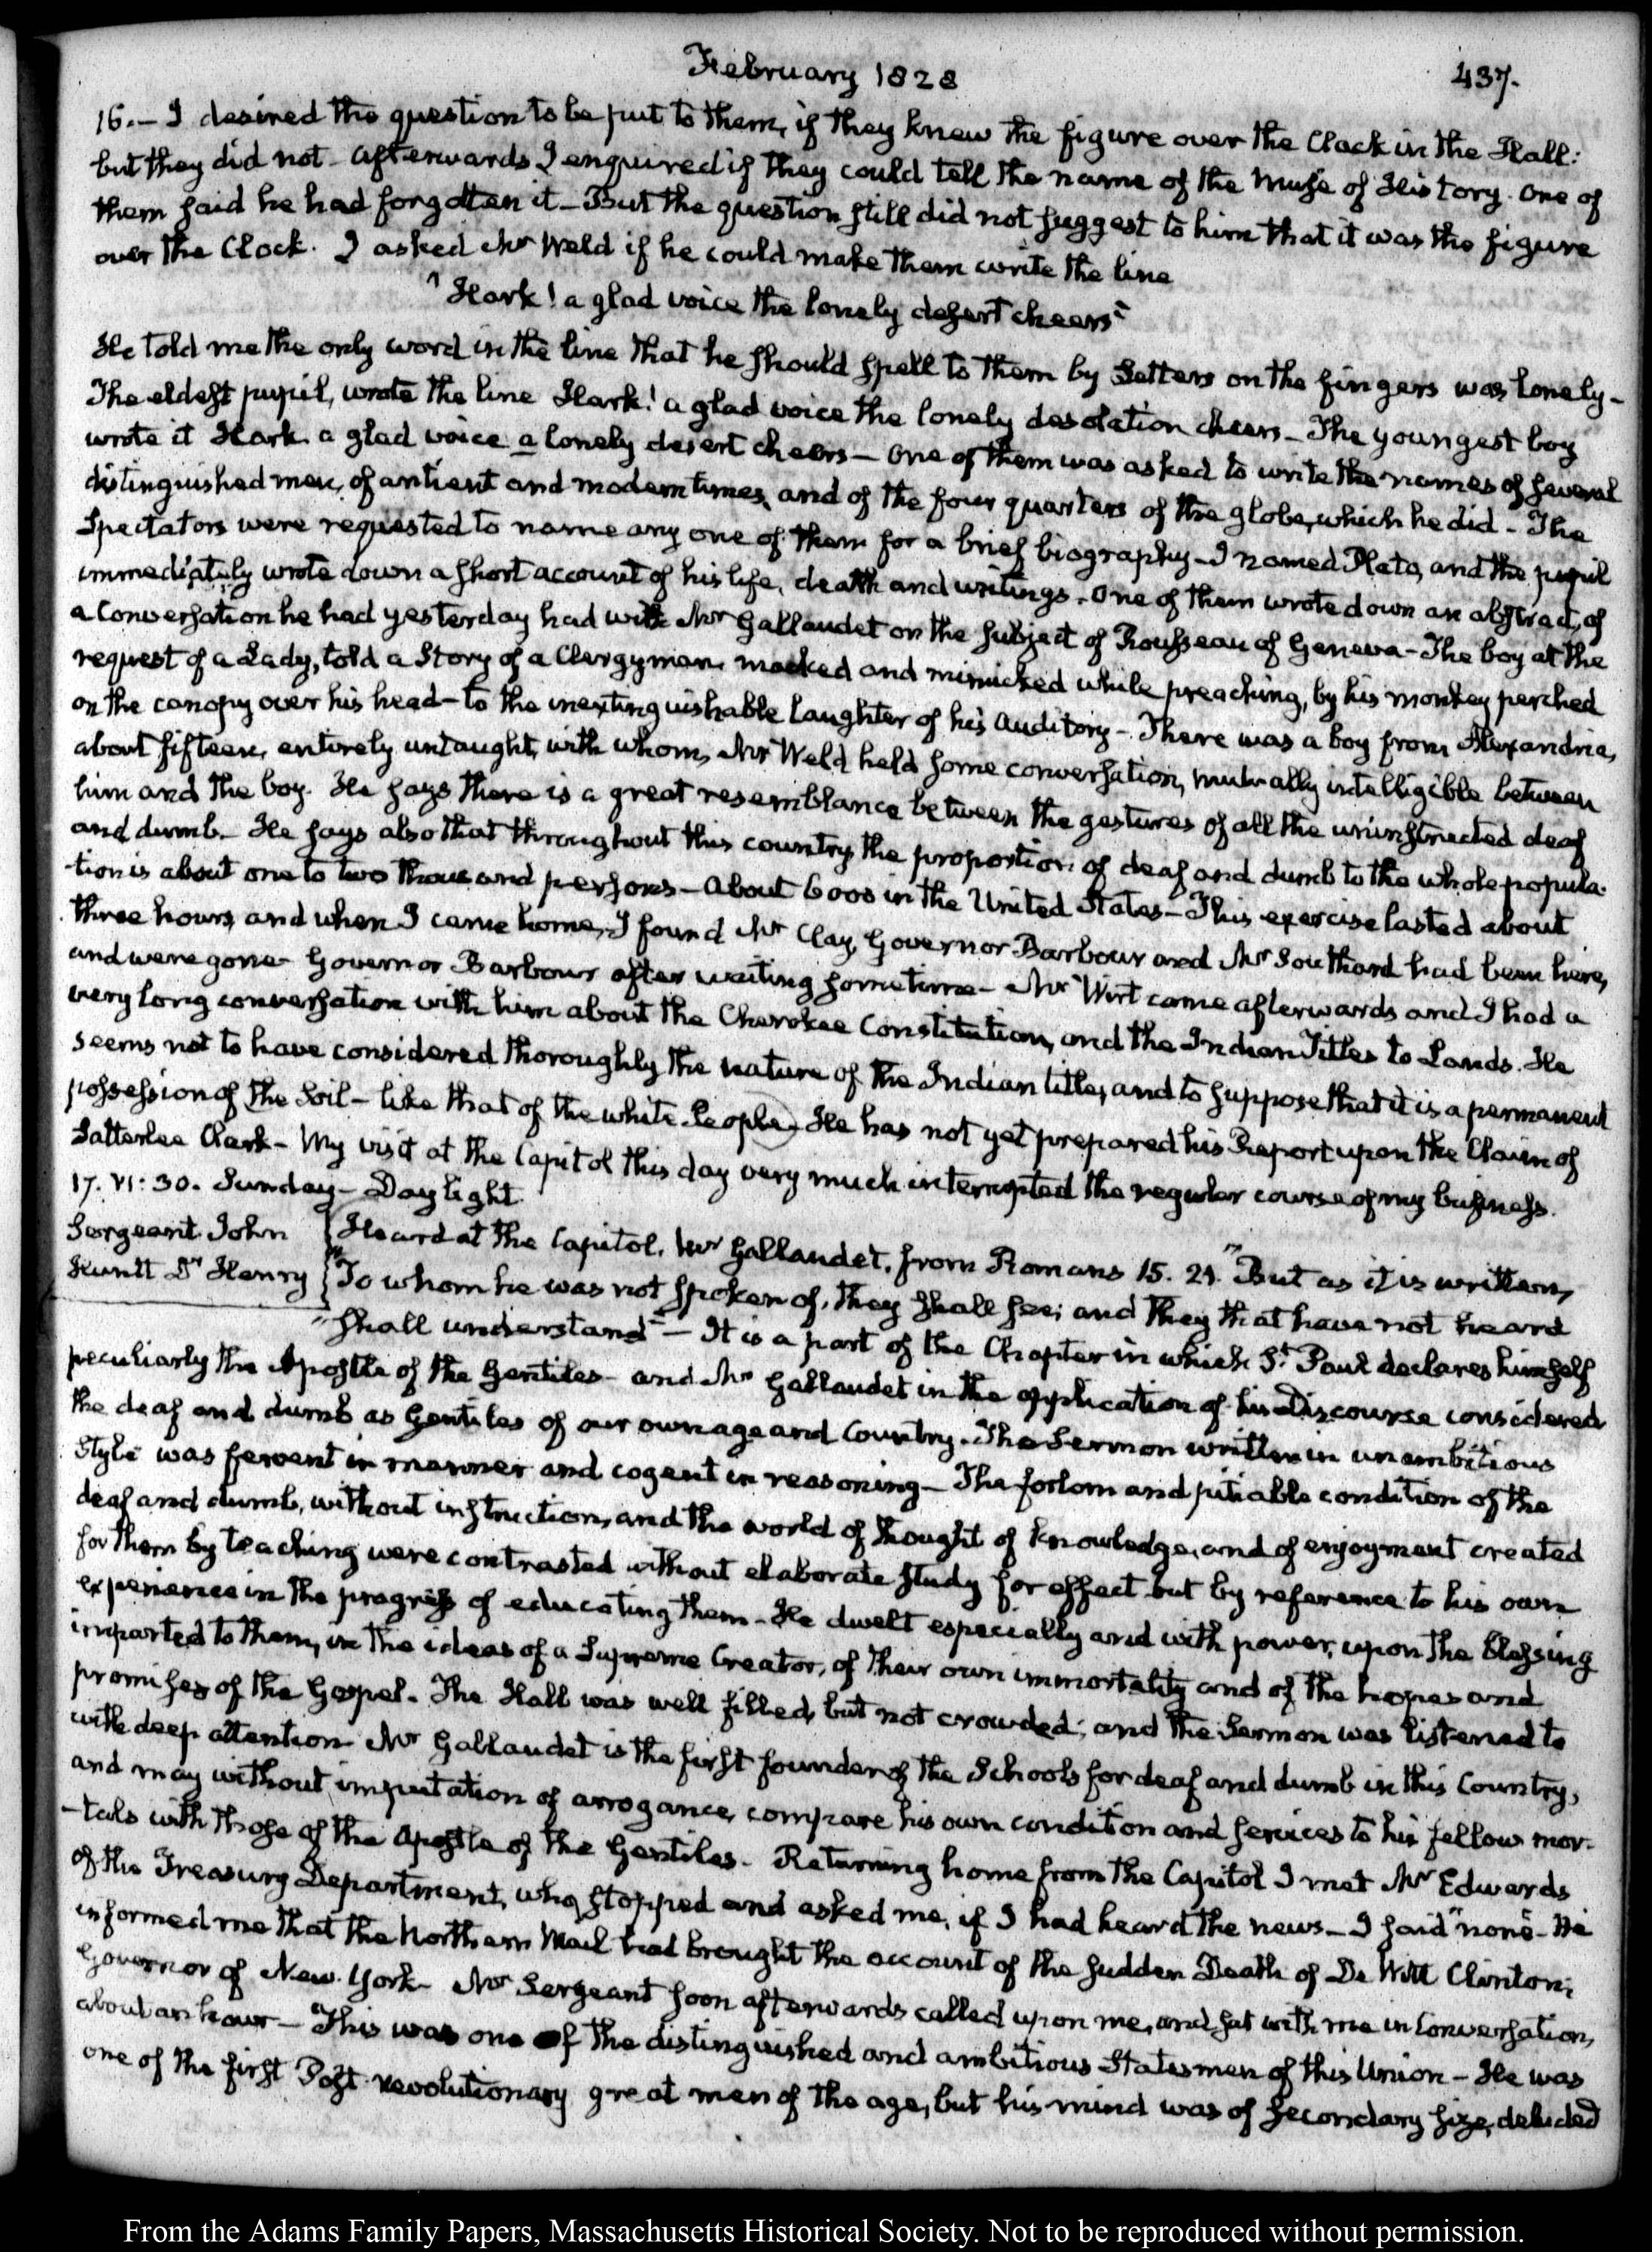 February 1828
437.
16.— I desired the question to be put to them, if they knew the figure over the Clock in the Hall:
but they did not— afterwards I enquired if they could tell the name of the Muse of History. One of
them said he had forgotten it— But the question still did not suggest to him that it was the figure
over the Clock. I asked Mr Weld if he could make them write the line
"Hark! a glad voice the lonely desert cheers"
He told me the only word in the line that he should spell to them by Letters on the fingers was lonely—
The eldest pupil, wrote the line Hark! a glad voice the lonely desolation cheers— The youngest boy
wrote it Hark a glad voice a lonely desert cheers— One of them was asked to write the names of several
distinguished men, of antient and modern times, and of the four quarters of the globe, which he did— The
Spectators were requested to name any one of them for a brief biography— I named Plato, and the pupil
immediately wrote down a short account of his life, death and writings. One of them wrote down an abstract, of
a Conversation he had yesterday had with Mr Gallaudet on the subject of Rousseau of Geneva— The boy at the
request of a Lady, told a Story of a Clergyman mocked and mimicked while preaching, by his monkey perched
on the canopy over his head— to the inextinguishable laughter of his auditory— There was a boy from Alexandria,
about fifteen, entirely untaught, with whom, Mr Weld held some conversation, mutually intelligible between
him and the boy. He says there is a great resemblance between the gestures of all the uninstructed deaf
and dumb— He says also that throughout this country, the proportion of deaf and dumb to the whole popula-
-tion is about one to two thousand persons— about 6000 in the United States— This exercise lasted about
three hours, and when I came home, I found Mr Clay, Governor Barbour and Mr Southard had been here,
and were gone— Governor Barbour after waiting sometime— Mr Wirt came afterwards and I had a
very long conversation with him about the Cherokee Constitution, and the Indian Titles to Lands. He
seems not to have considered thoroughly the nature of the Indian title, and to suppose that it is a permanent
possession of the Soil— like that of the white People— He has not yet prepared his Report upon the Claim of
Satterlee Clark— My visit at the Capitol this day very much interrupted the regular course of my business.
17. VI: 30. Sunday— Day light
Sergeant John
Huntt Dr Henry
Heard at the Capitol, Mr Gallaudet, from Romans 15. 21. "But as it is written,
"To whom he was not spoken of, they shall see; and they that have not heard
"shall understand"— It is a part of the Chapter in which St. Paul declares himself
peculiarly the Apostle of the Gentiles— and Mr Gallaudet in the application of his Discourse considered
the deaf and dumb as Gentiles of our own age and Country. The Sermon written in unambitious
Style was fervent in manner and cogent in reasoning— The forlorn and pitiable condition of the
deaf and dumb, without instruction, and the world of thought of knowledge, and of enjoyment created
for them by teaching were contrasted without elaborate study for effect but by reference to his own
experience in the progress of educating them— He dwelt especially and with power, upon the blessing
imparted to them, in the ideas of a Supreme Creator, of their own immortality and of the hopes and
promises of the Gospel. The Hall was well filled, but not crowded; and the Sermon was listened to
with deep attention— Mr Gallaudet is the first founder of the Schools for deaf and dumb in this Country,
and may without imputation of arrogance, compare his own condition and services to his fellow mor-
-tals with those of the Apostle of the Gentiles. Returning home from the Capitol I met Mr Edwards
of the Treasury Department, who stopped and asked me, if I had heard the news— I said "none"— He
informed me that the Northern Mail had brought the account of the sudden Death of De Witt Clinton,
Governor of New York— Mr Sergeant soon afterwards called upon me, and sat with me in conversation,
about an hour— This was one of the distinguished and ambitious Statesmen of this Union— He was
one of the first Post revolutionary great men of the age, but his mind was of secondary size, deluded
From the Adams Family Papers, Massachusetts Historical Society. Not to be reproduced without permission.